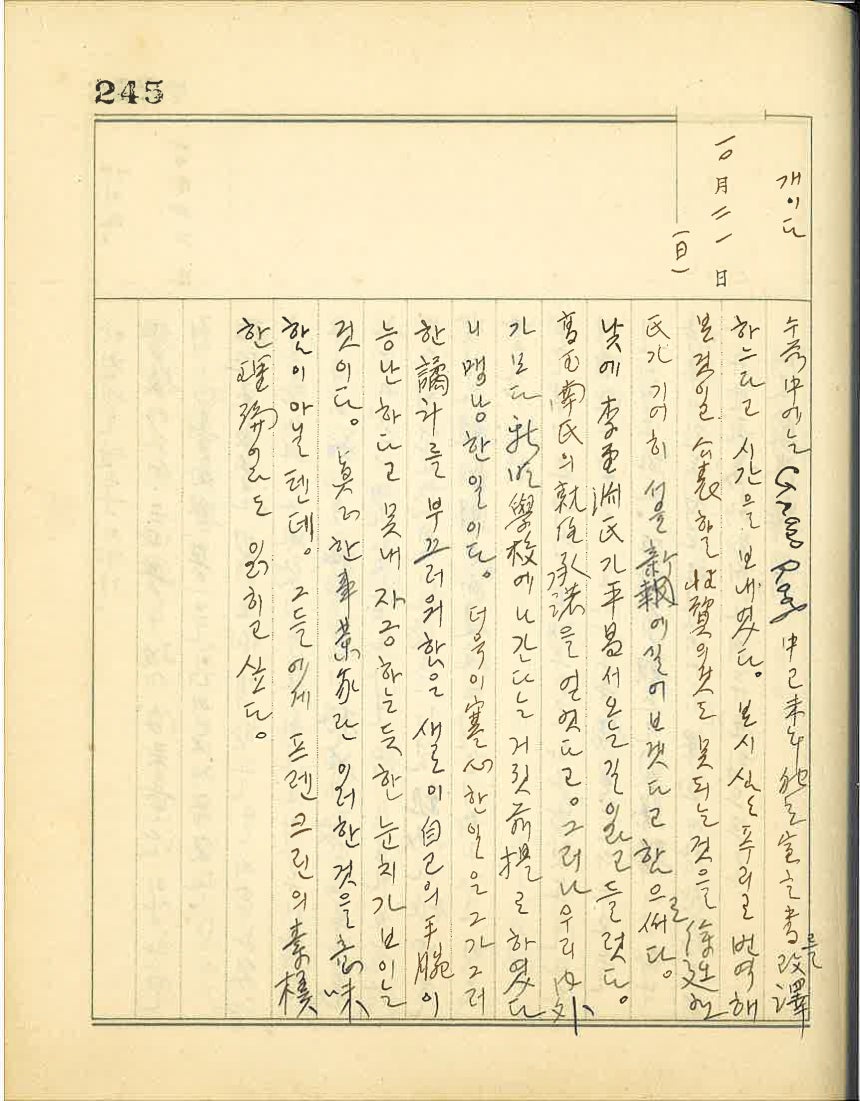 245
개이다
一0月二一日
(日)
午前中에는 中 己未年 独立宣言書 改譯를
하느라고 시간을 보내였다. 본시 심심푸리로 번역해
본것일 発表할 性質의것도 못되는 것을
氏가 기어히 서울新報에 실어보겟다고 함으로써다.
낮에 李 氏가 平昌서 오는 길이라고 들럿다.
高 南氏의 就任承諾을 얻엇다고. 그러나 우리 内外
가 보다 學校에 나간다는 거짓前提로 하였다
니 맹낭한 일이다. 더욱이 寒心한 일은 그가 그러
한 譎計를 부끄러워함은 새로이 自己의 手腕이
능난하다고 못내 자긍하는 듯한 눈치가 보이는
것이다. 眞正한 事業家란 이러한 것을 意味
함이 아닐텐데. 그들에게 프렌크린의 素樸
한 理論이라도 읽히고 싶다.